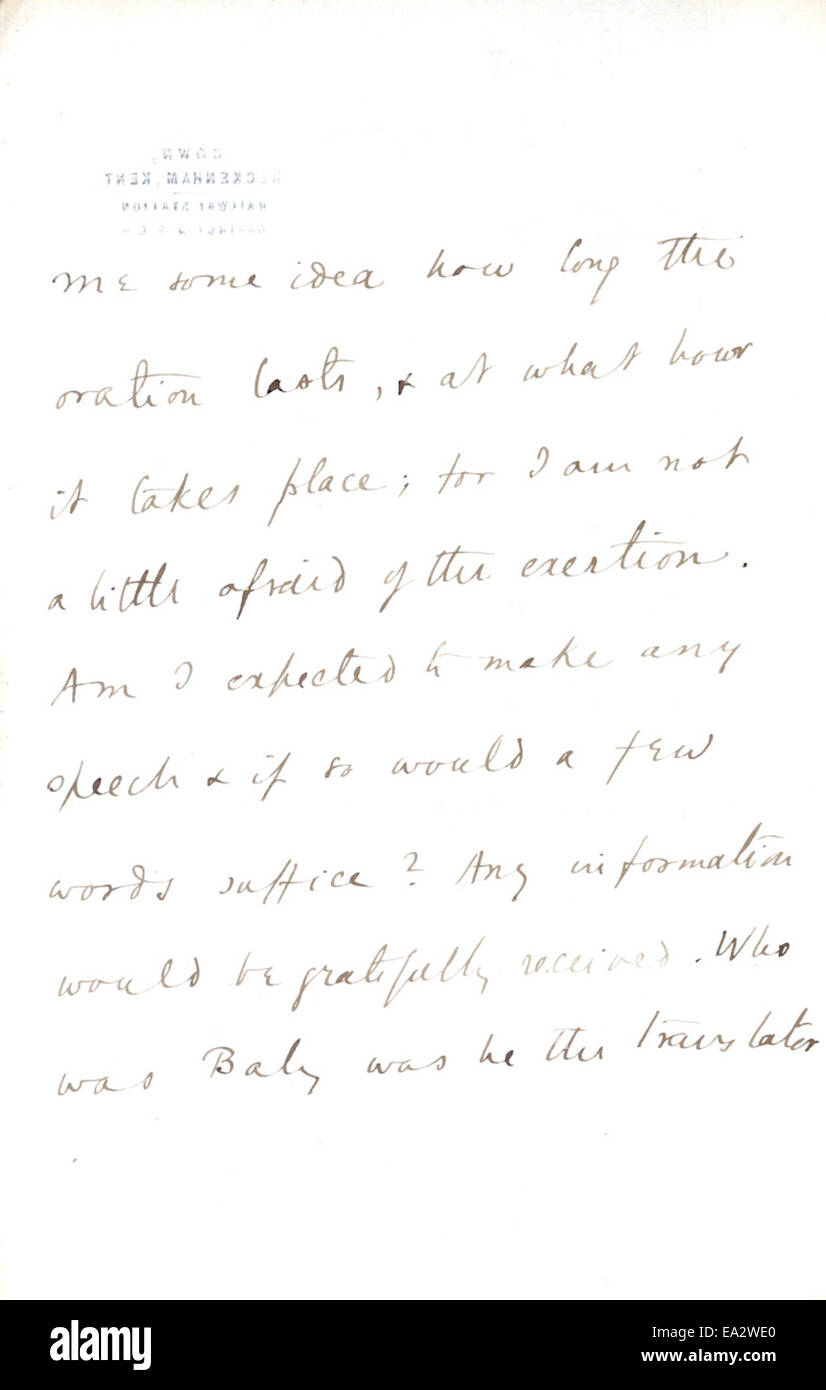 DOWN,
BECKENHAM, KENT
RAILWAY STATION
ORPINGTON S.E.R.
me some idea how long the
oration lasts, & at what hour
it takes place; for I am not
a little afraid of the exertion.
Am I expected to make any
speech & if so would a few
words suffice? Any information
would be gratefully received. Who
was Baly was he the translator
alamy
Image ID: EA2WE0
www.alamy.com